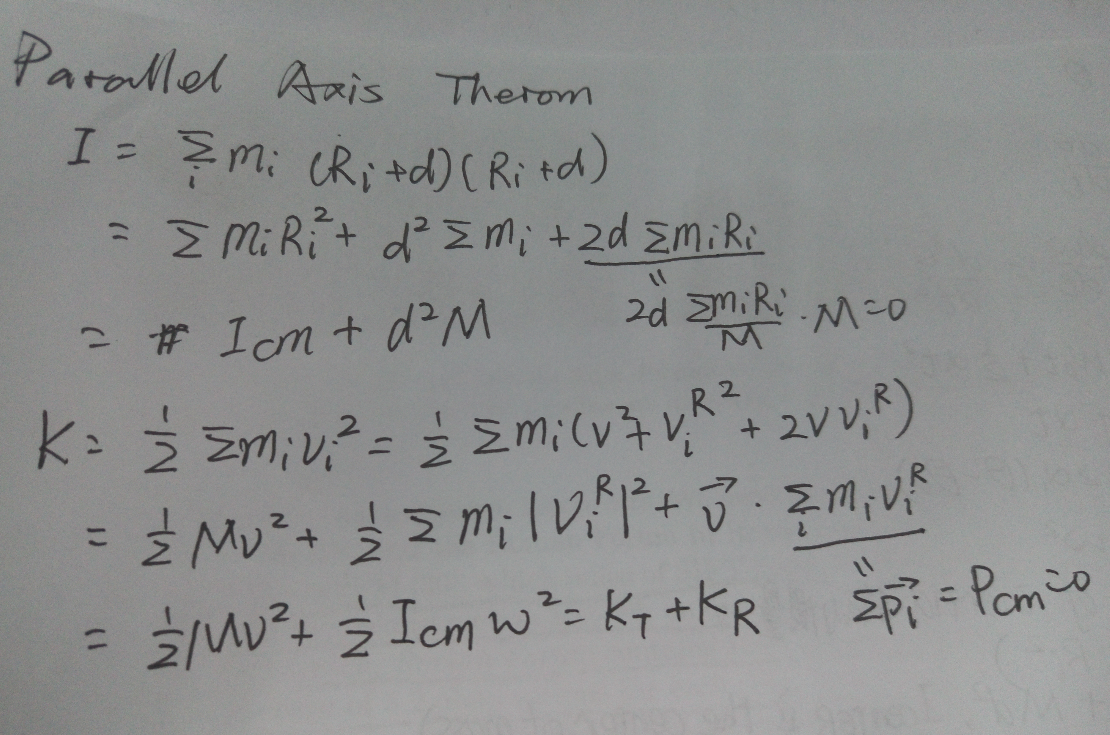 Parallel Axis Therom
I = Σᵢ mᵢ (Rᵢ+d)(Rᵢ+d)
= Σ mᵢRᵢ² + d² Σ mᵢ + 2d ΣmᵢRᵢ
= Icm + d²M
2d ΣmᵢRᵢ/M · M=0
K= 1/2 Σmᵢvᵢ² = 1/2 Σ mᵢ(v²+ vᵢᴿ² + 2v vᵢᴿ)
= 1/2 Mv² + 1/2 Σ mᵢ |vᵢᴿ|² + v⃗ · Σᵢ mᵢvᵢᴿ
= 1/2 Mv² + 1/2 Icm w² = K_T + K_R
Σp⃗ᵢ = Pcm=0